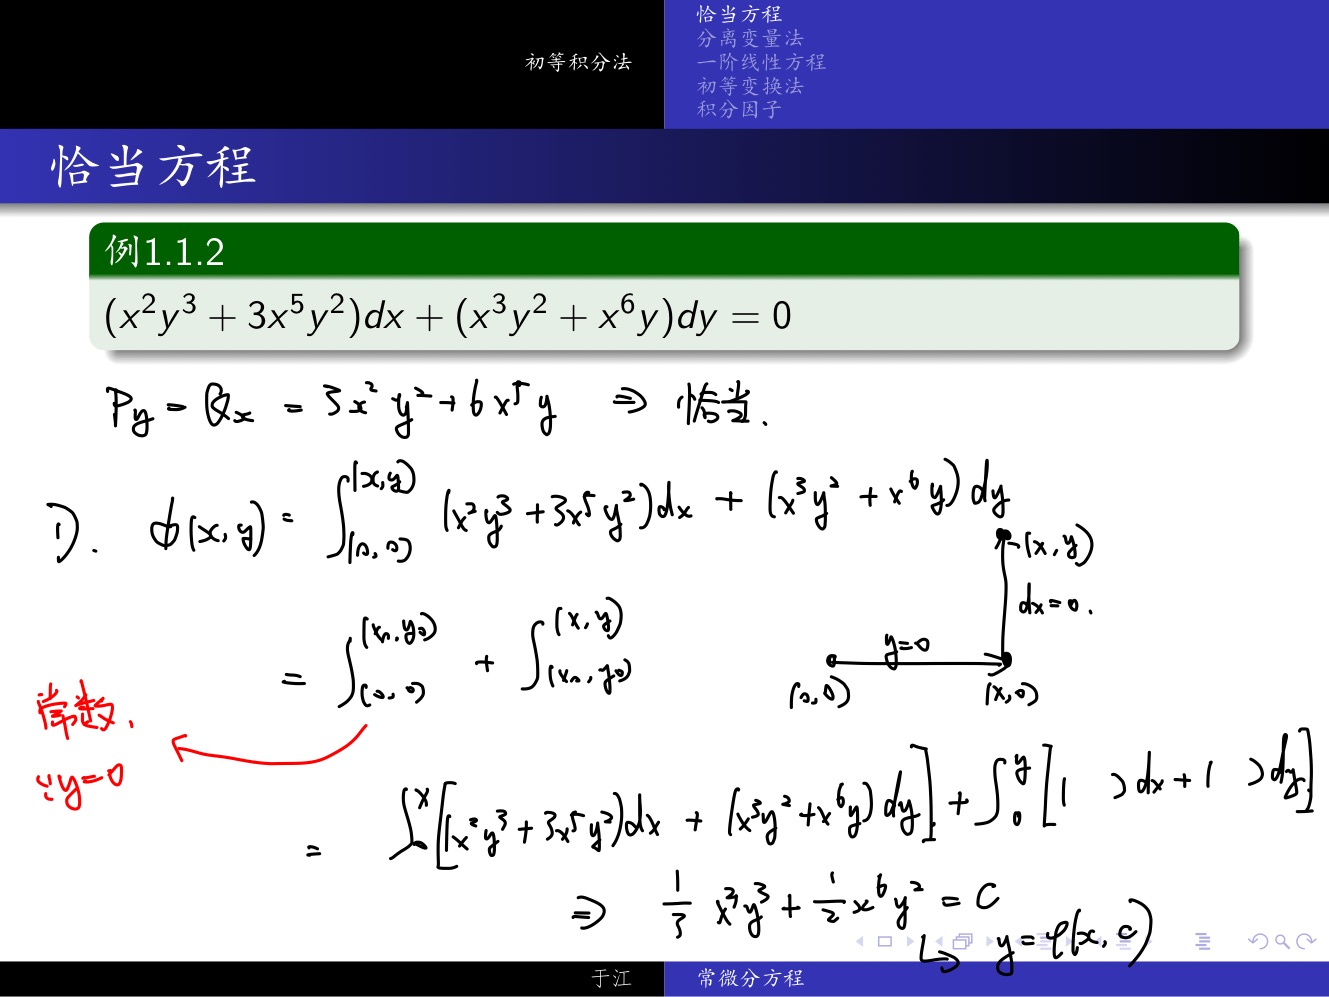 初等积分法
恰当方程
分离变量法
一阶线性方程
初等变换法
积分因子
恰当方程
例1.1.2
(x²y³ + 3x⁵y²)dx + (x³y² + x⁶y)dy = 0
Py = Qx = 3x²y² + 6x⁵y ⇒ 恰当.
1). ϕ(x,y) = ∫_(0,0)^(x,y) (x²y³ + 3x⁵y²)dx + (x³y² + x⁶y)dy
(x,y)
dx=0.
y=0
(0,0) (x,0)
= ∫_(0,0)^(x₀,y₀) + ∫_(x₀,y₀)^(x,y)
常数,
∵y=0
= ∫_0^x [(x²y³ + 3x⁵y²)dx + (x³y² + x⁶y)dy] + ∫_0^y [( )dx + ( )dy]
⇒ 1/3 x³y³ + 1/2 x⁶y² = C
↳ y = φ(x,c)
于江 常微分方程